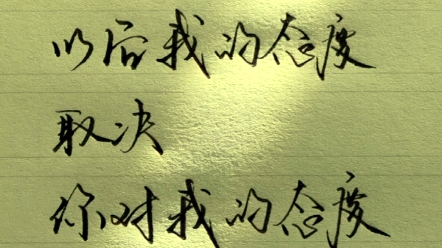 以后我的态度
取决
你对我的态度